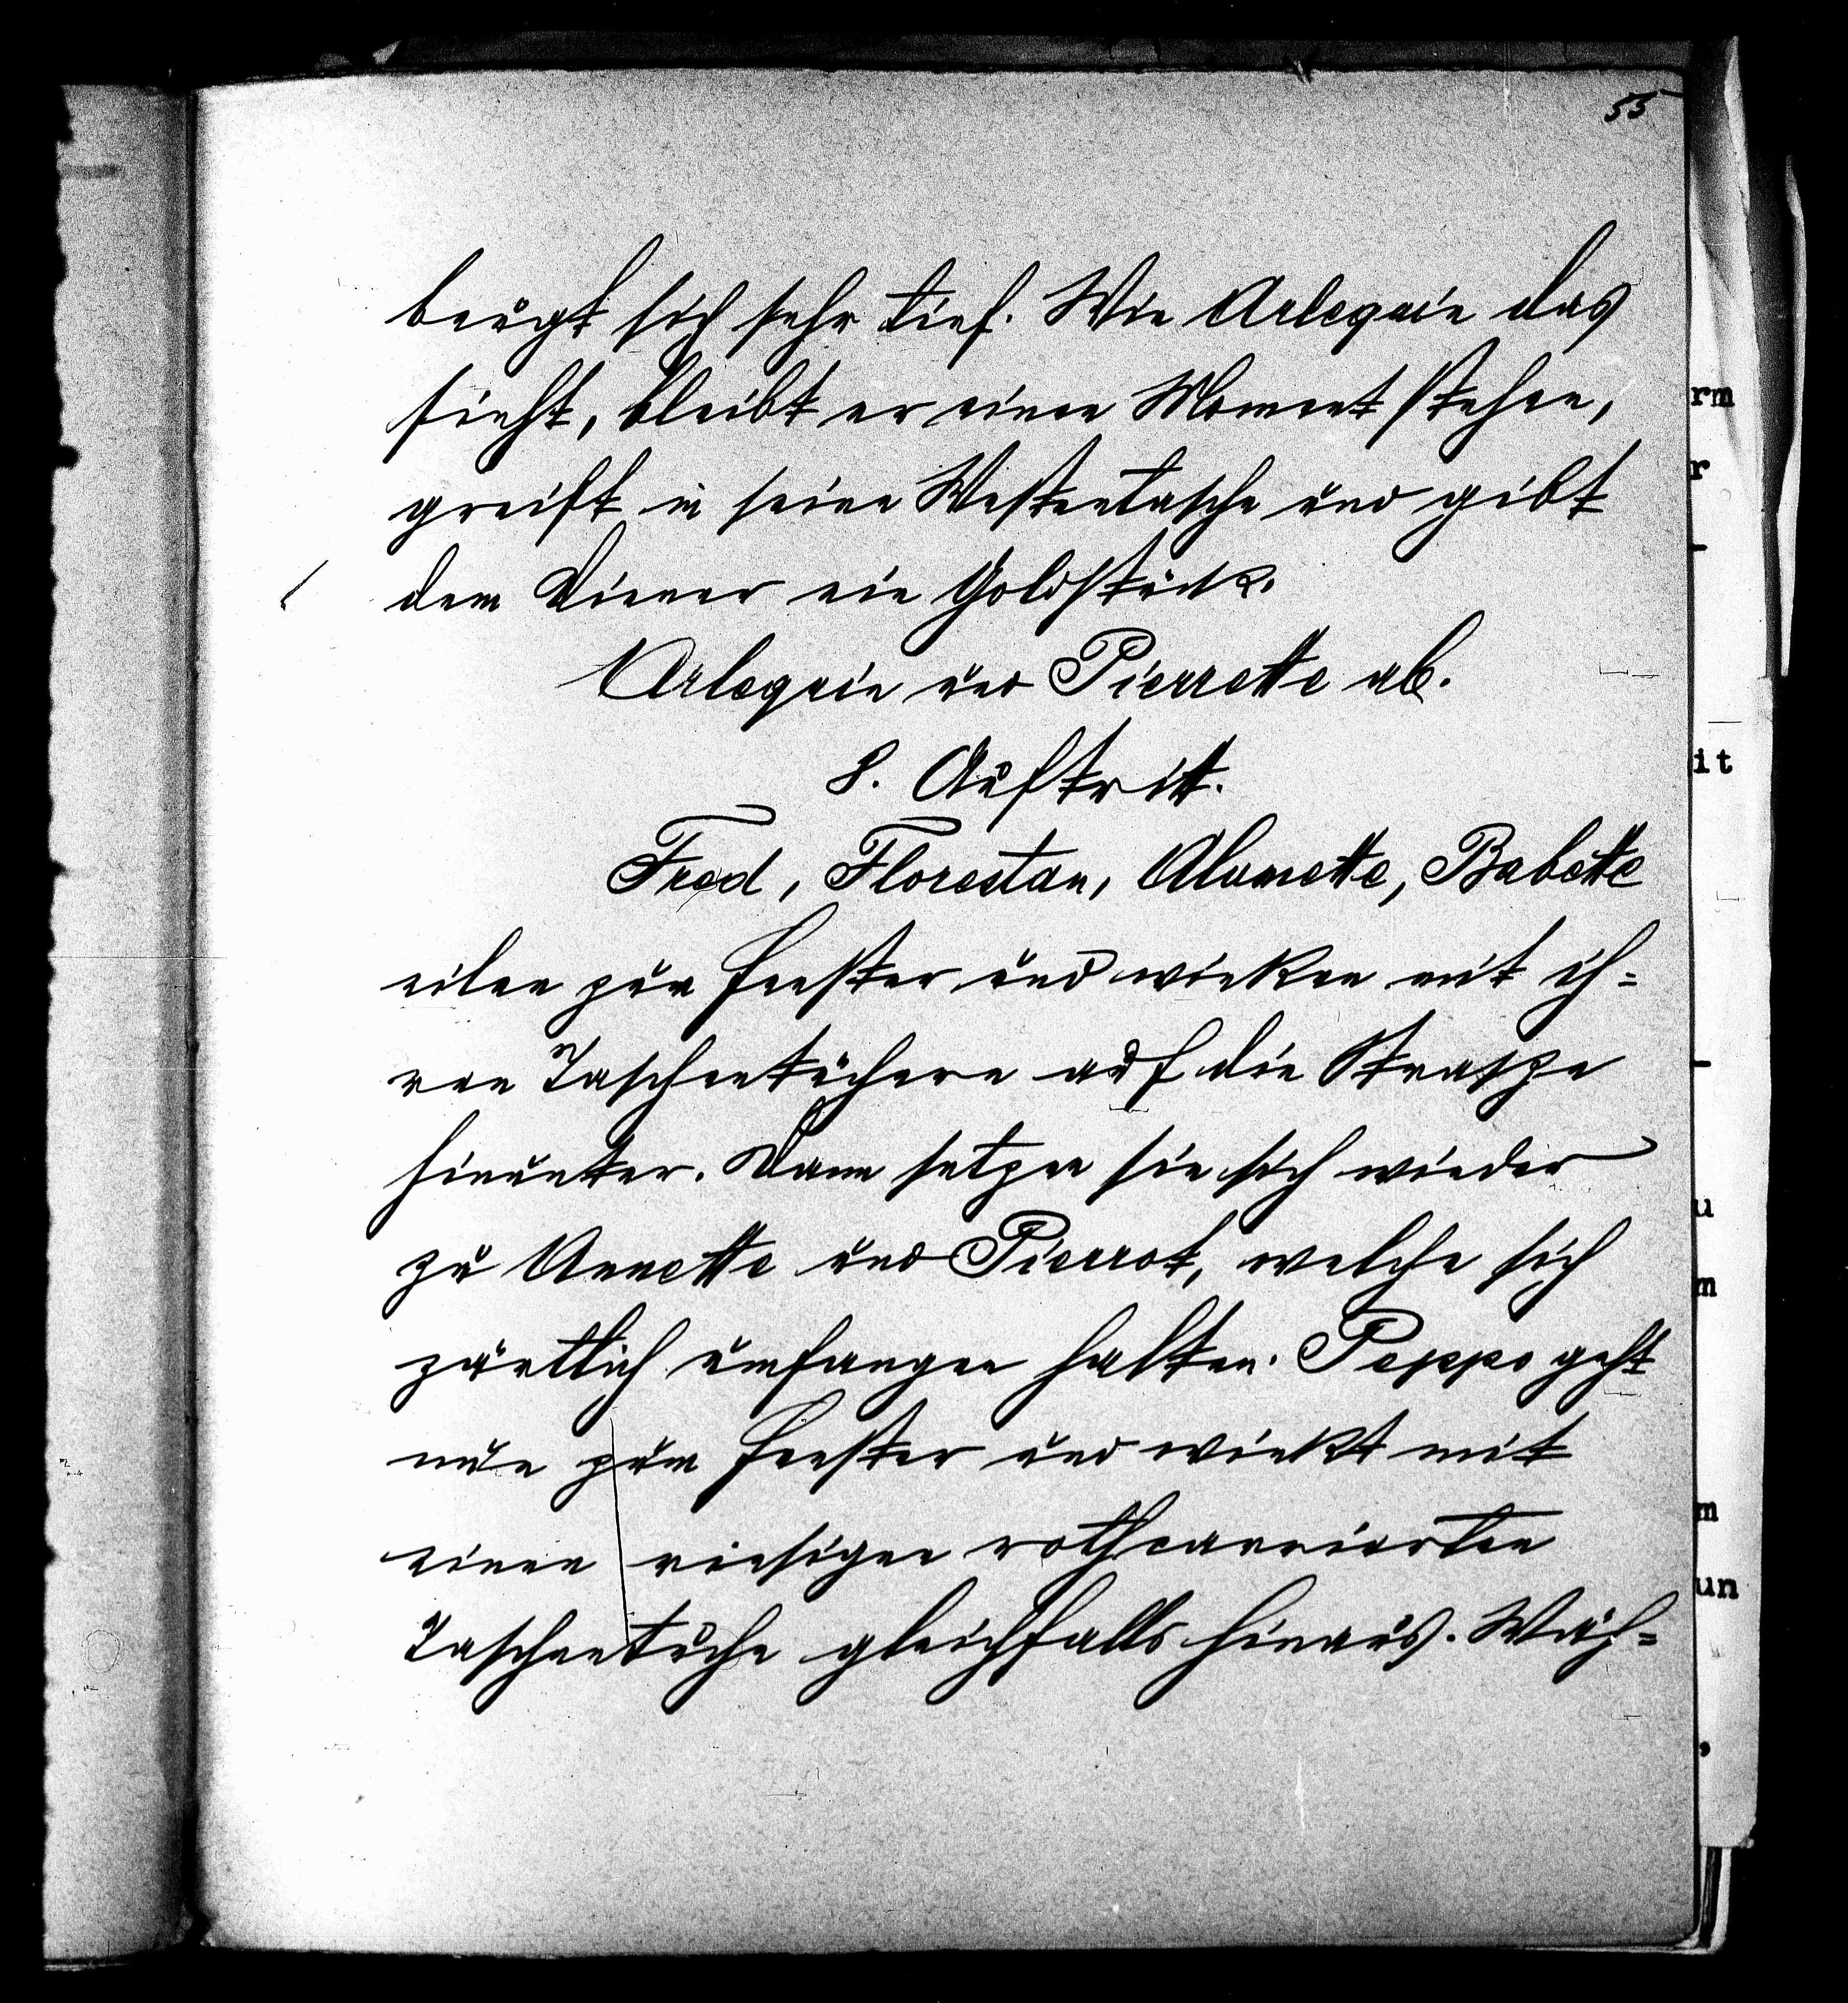 55
beugt sich sehr tief. Wie Arlequin das
sieht, bleibt er einen Moment stehen,
greift in seine Westentasche und gibt
dem Diener ein Goldstück.
Arlequin und Pierrette ab.
8. Auftritt.
Fred, Florestan, Alumette, Babette
eilen zum Fenster und winken mit ih=
ren Taschentüchern auf die Strasze
hinunter. Dann setzen sie sich wieder
zu Annette und Pierrot, welche sich
zärtlich umfangen halten. Peppo geht
nun zum Fenster und winkt mit
einen riesigen rothcarrierten
Taschentuche gleichfalls hinaus. Wäh=
rm
r
-
it
-
u
m
m
un
,